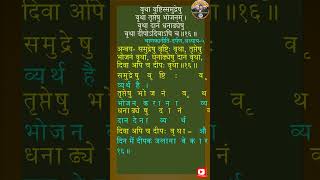 वृथा वृष्टिस्समुद्रेषु
वृथा तृप्तेषु भोजनम्।
वृथा दानं धनाढ्येषु
वृथा दीपोऽदिवाऽपि च॥१६॥
अन्वय- समुद्रेषु वृष्टिः वृथा, तृप्तेषु
भोजनं वृथा, धनाढ्येषु दानं वृथा,
दिवा अपि च दीपः वृथा॥१६॥
समुद्रेषु वृष्टिः वृ
व्यर्थ है।
तृप्तेषु भोजनं वृथा
भोजन कराना व्यर्थ
धनाढ्येषु दानं
दान देना व्यर्थ
दिवा अपि च दीपः वृथा- औ
दिन में दीपक जलाना बेकार
१६॥